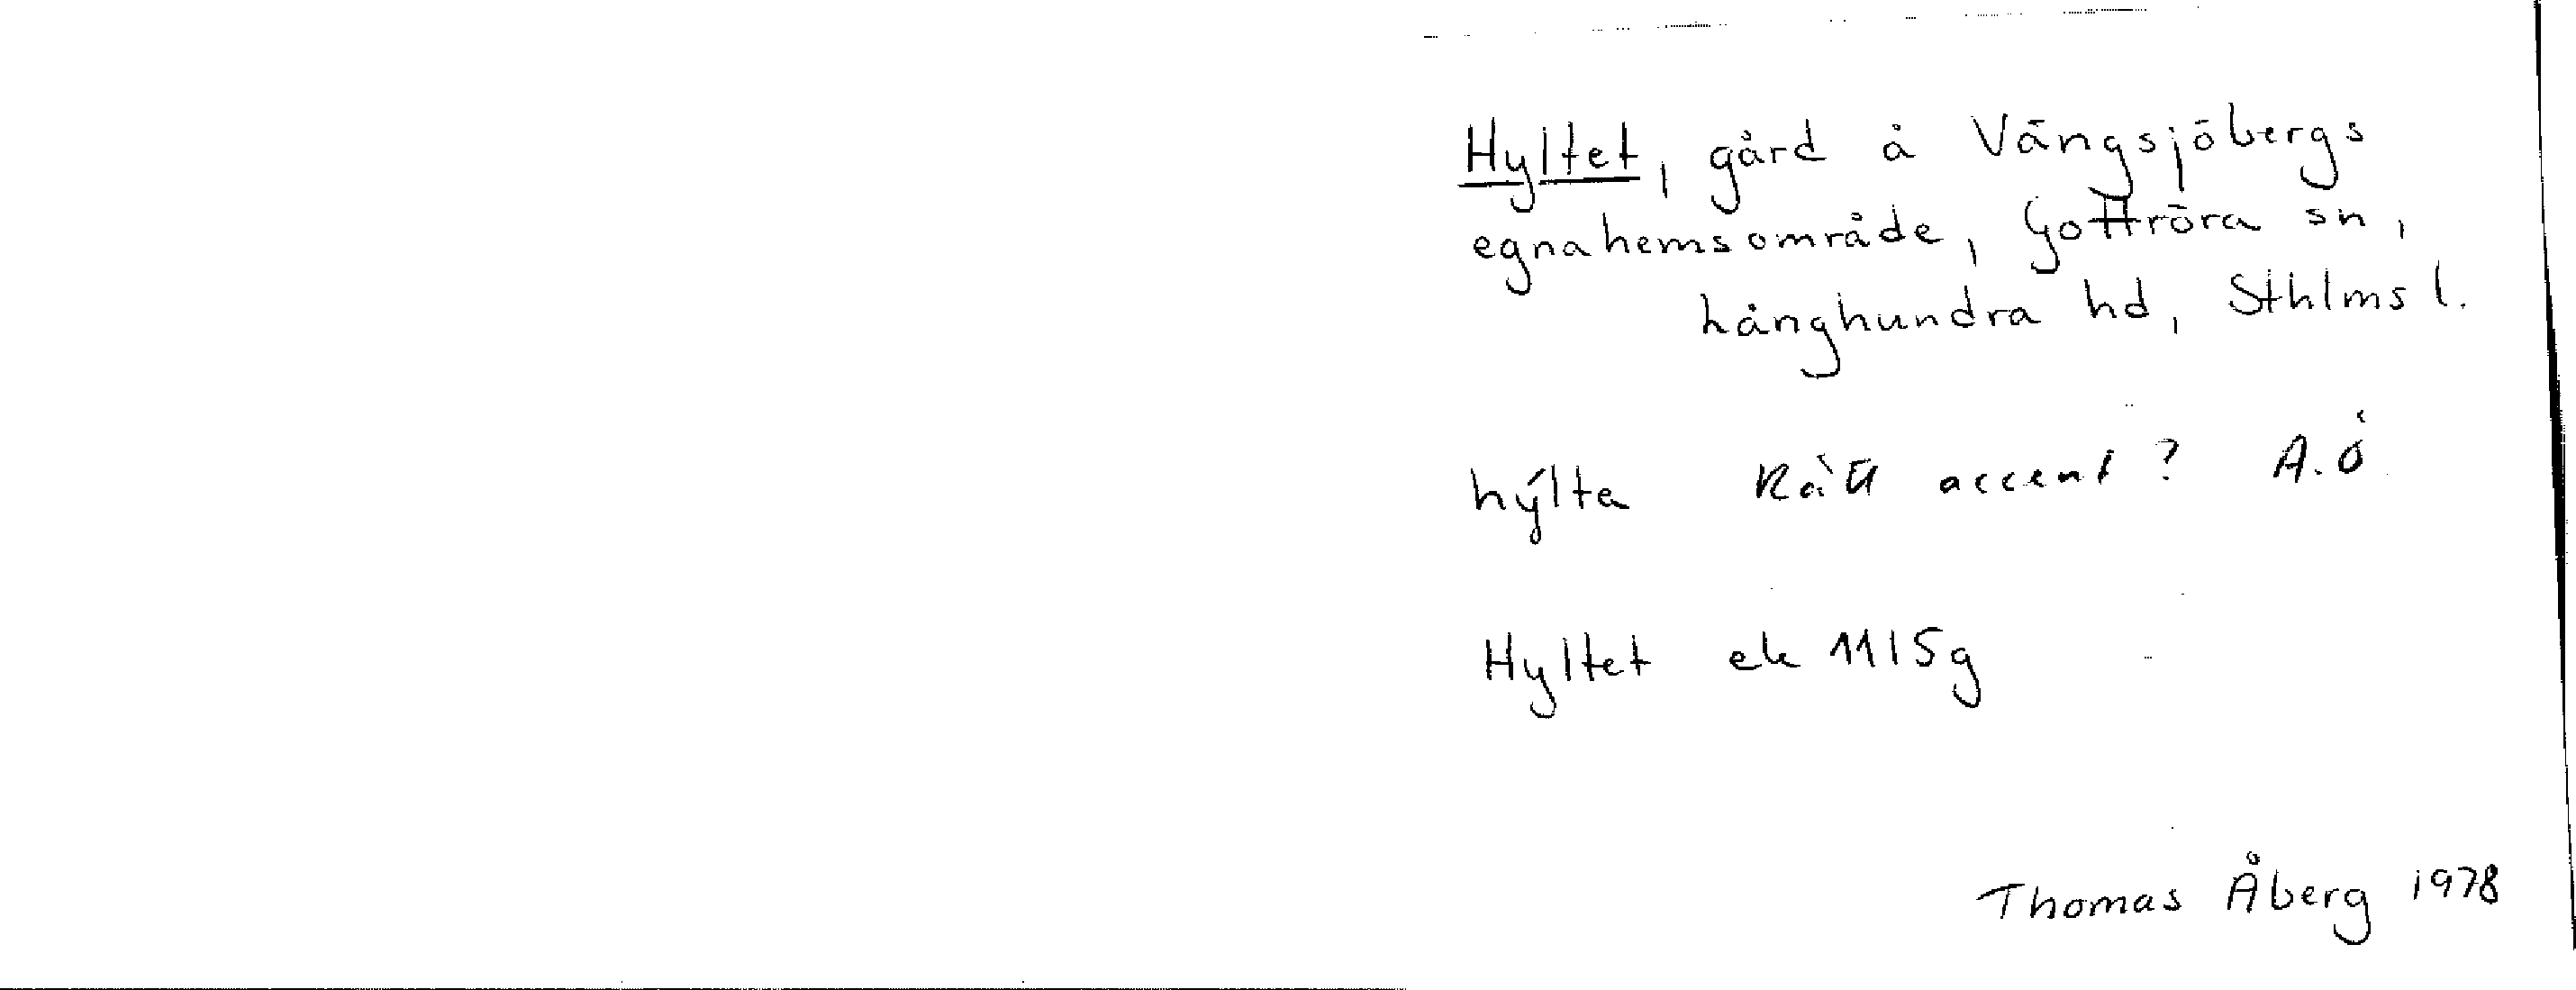 Hyltet, gård å Vängsjöbergs
egnahemsområde, Gottröra sn,
Långhundra hd, Sthlms l.
hýlta Rätt accent? A.Ö
Hyltet ek 11I5g
Thomas Åberg 1978